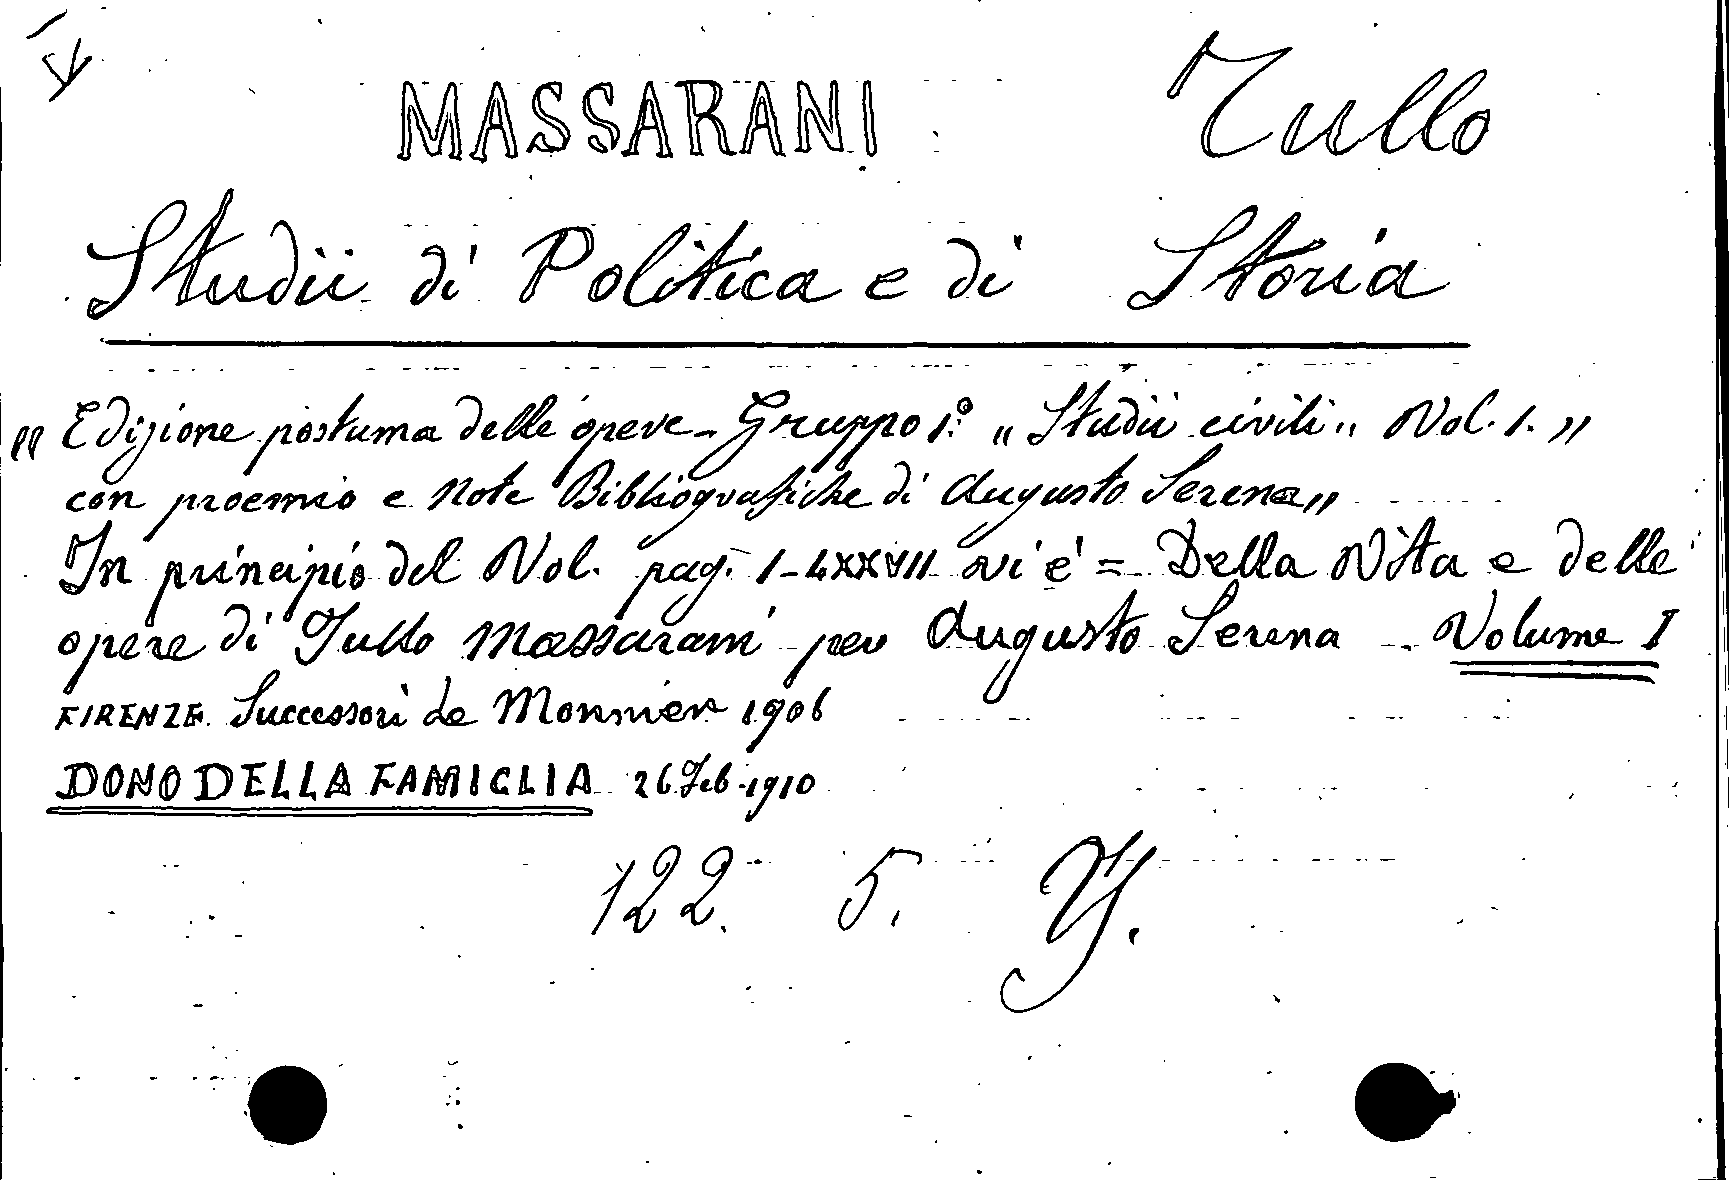 MASSARANI Tullo
Studii di Politica e di Storia
"Edizione postuma delle opere - Gruppo 1.º „Studii civili„ Vol. 1.„
con proemio e Note Bibliografiche di Augusto Serena„
In principio del Vol. pag. I-LXXVII vi è = Della Vita e delle
opere di Tullo Massarani per Augusto Serena - Volume I
FIRENZE. Successori Le Monnier 1906
DONO DELLA FAMIGLIA 26 Feb. 1910
122. 5. Y.